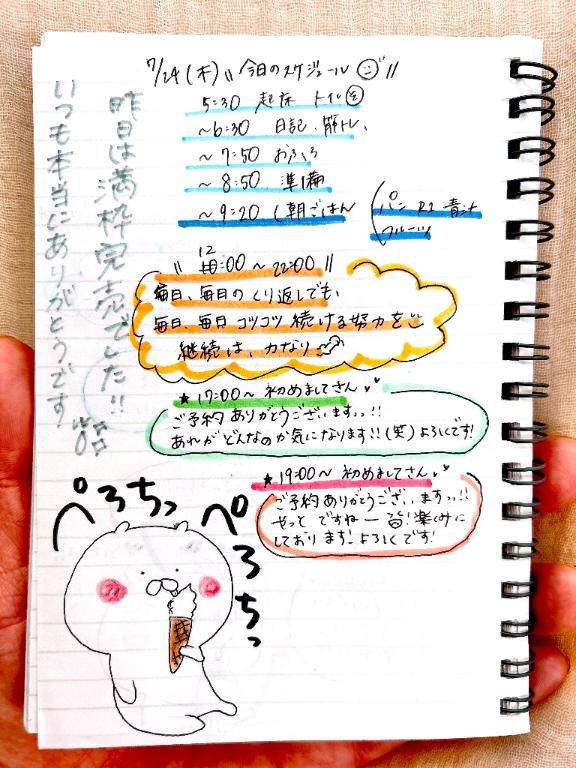 7/24(木)"今日のスケジュール"
5:30 起床 トイレ
~6:30 日記、筋トレ、
~7:50 おふろ
~8:50 準備
~9:20 朝ごはん
パン R1 青汁
フルーツ
12
:00~22:00
毎日、毎日のくり返しでも、
毎日、毎日コツコツ続ける努力を
継続は、力なり
★17:00~初めましてさん
ご予約ありがとうございますっっ!!
あれがどんなのか気になります!!(笑)よろしくです!
★19:00~初めましてさん
ご予約ありがとうございますっっ!!
やっとですねー 楽しみに
しております! よろしくです!
昨日は満枠完売でした!!
いつも本当にありがとうです
ぺろちっ
ペろちっ